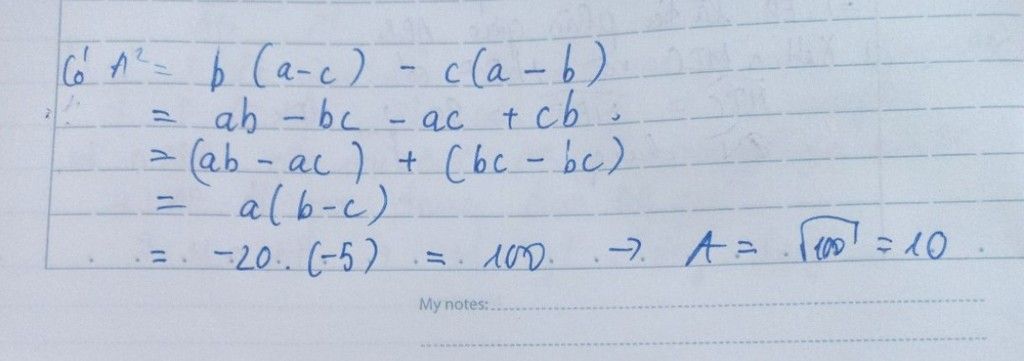 Có A² = b (a-c) - c(a-b)
= ab - bc - ac + cb.
= (ab - ac) + (bc - bc)
= a(b-c)
= -20. (-5) = 100 → A = √100 = 10
My notes: